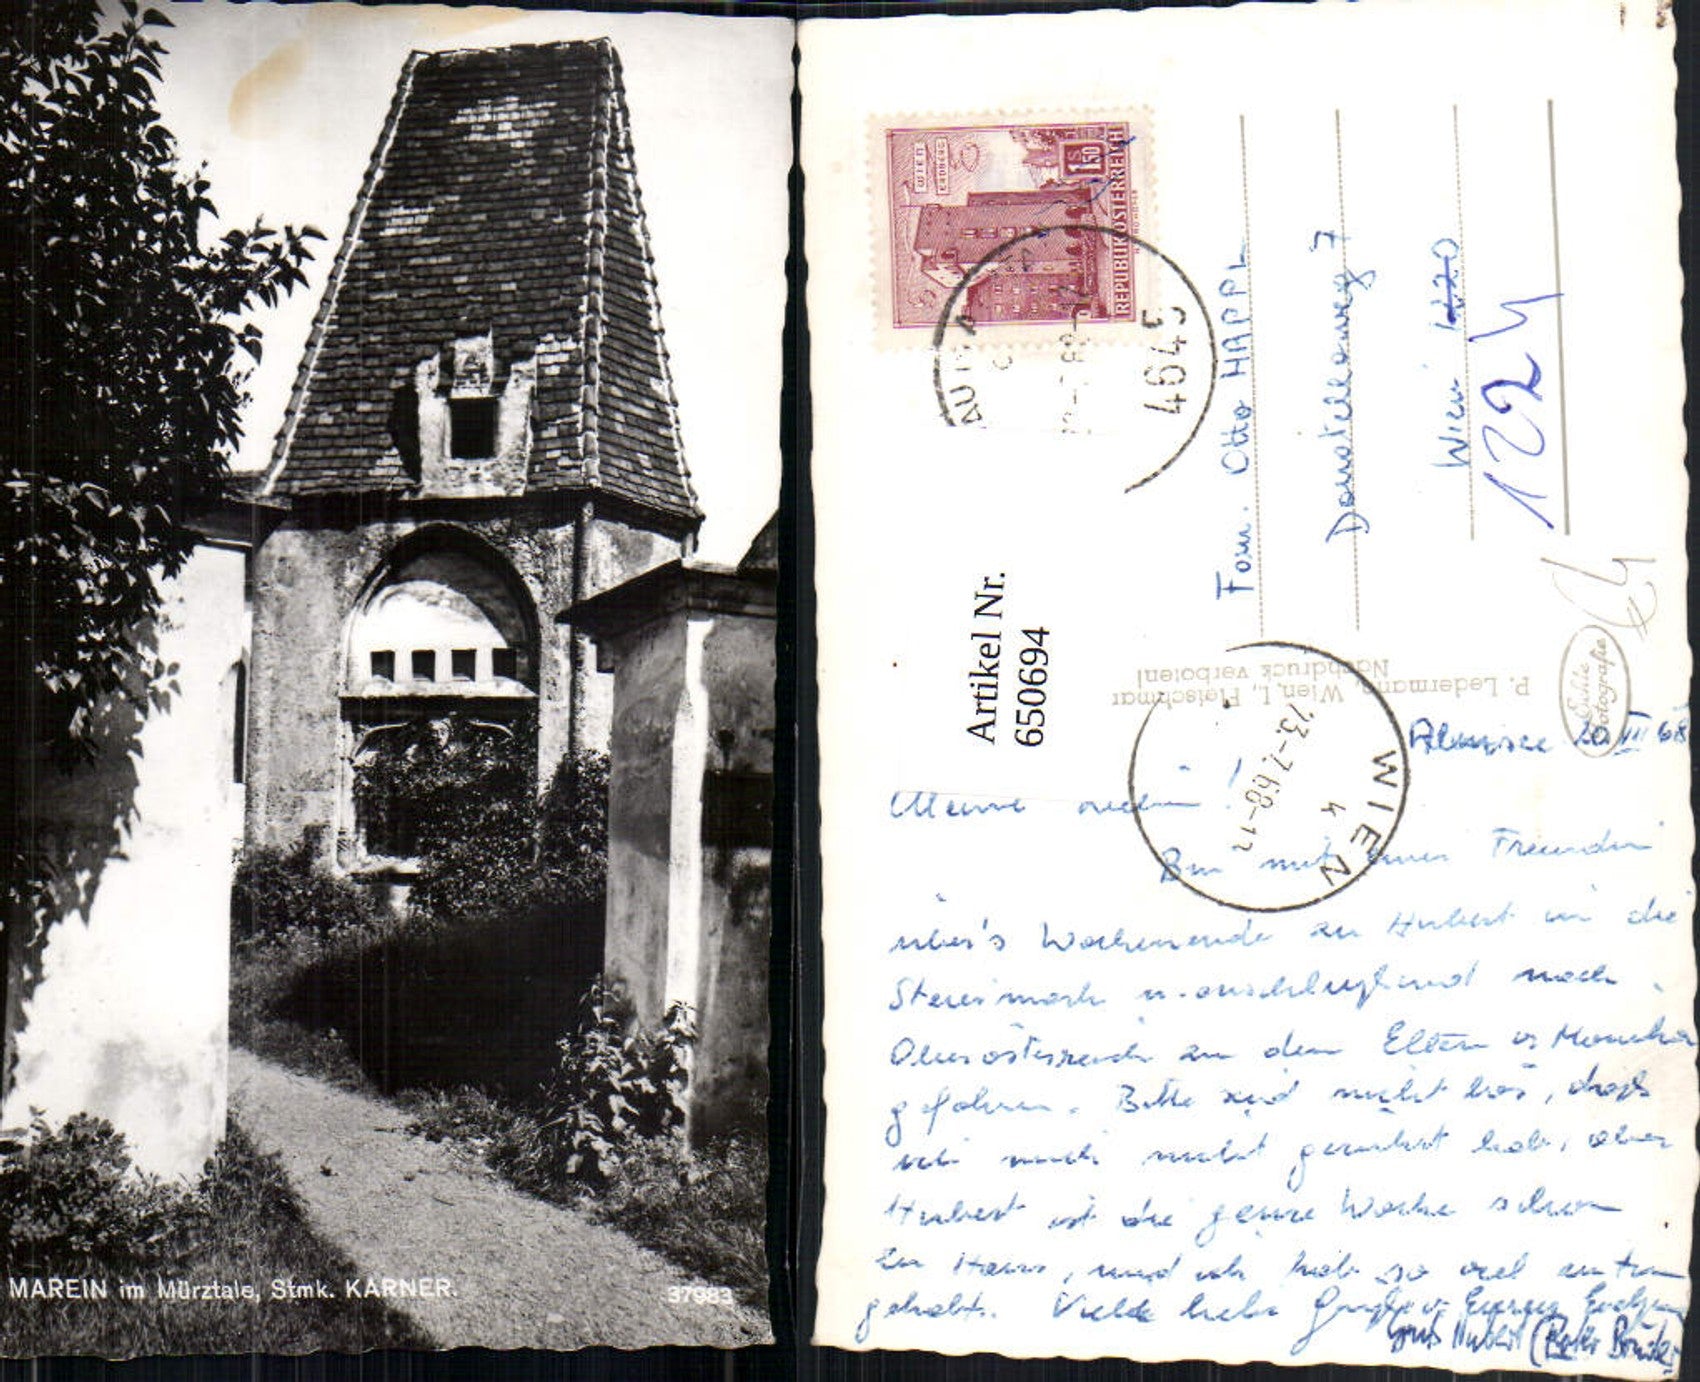 MAREIN im Mürztale, Stmk. KARNER.
37983
WIEN
ERDBERG
1S50
REPUBLIK ÖSTERREICH
4645
Fam. Otto HAPPL
7
Wien 1220
1224
Artikel Nr.
650694
P. Ledermann, Wien I., Fleischmar
Nachdruck verboten!
Echte
Fotografie
WIEN
23.-7.68-12
Almsee VII 68
Meine !
Bin mit einer Freundin
über's Wochenende zu Hubert in die
Steiermark u. anschließend nach
Oberösterreich zu den Eltern v.
gefahren. Bitte seid nicht bös, daß
ich mich nicht gerührt hab, aber
Hubert ist die ganze Woche schon
zu Haus, und ich hab so viel zu tun
gehabt. Viele liebe Grüße v. Eurer
Gruß Hubert